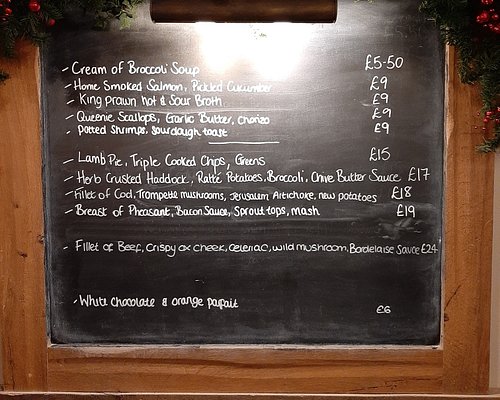 - Cream of Broccoli Soup £5-50
- Home Smoked Salmon, Pickled Cucumber £9
- King prawn hot & Sour Broth £9
- Queenie Scallops, Garlic Butter, chorizo £9
- Potted Shrimps, sourdough toast £9
- Lamb Pie, Triple Cooked Chips, Greens £15
- Herb Crusted Haddock, Ratte Potatoes, Broccoli, Chive Butter Sauce £17
- Fillet of Cod, Trompette mushrooms, Jerusalem Artichoke, new potatoes £18
- Breast of Pheasant, Bacon Sauce, Sprout tops, mash £19
- Fillet of Beef, crispy ox cheek, celeriac, wild mushroom, Bordelaise Sauce £24
- White Chocolate & orange parfait £6